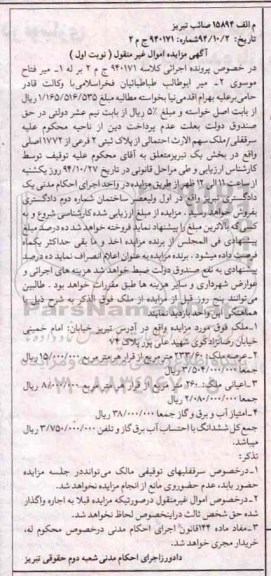 م الف ۱۵۸۹۴ صائب تبریز
تاریخ: ۹۴/۱۰/۲ شماره: ۹۴۰۱۷۱ ج م ۲
آگهی مزایده اموال غیر منقول ( نوبت اول )
در خصوص پرونده اجرائی کلاسه ۹۴۰۱۷۱ ج م ۲ بر له ۱- میر فتاح
موسوی ۲- میر ابوطالب طباطبائیان فخراسلامی با وکالت قادر
حامی برعلیه بهرام اقدمی نیا بخواسته مطالبه مبلغ ۱/۱۶۵/۵۱۶/۵۳۵ ریال
از بابت اصل خواسته و مبلغ ۵٪ ریال از بابت نیم عشر دولتی در حق
صندوق دولت بعلت عدم پرداخت دین از ناحیه محکوم علیه
سرقفلی/ملک سهم الارث احتمالی از پلاک ثبتی ۲ فرعی از ۱۷۷۲ اصلی
واقع در بخش یک تبریز متعلق به آقای محکوم علیه توقیف توسط
کارشناس ارزیابی و طی مراحل قانونی در تاریخ ۹۴/۱۰/۲۷ روز یکشنبه
از ساعت ۱۱ الی ۱۲ ظهر از طریق مزایده در واحد اجرای احکام مدنی یک
دادگستری تبریز واقع در اول ولیعصر ساختمان شماره دوم دادگستری
بفروش خواهد رسید. مزایده از مبلغ ارزیابی شده کارشناسی شروع و به
کسی که بالاترین مبلغ را پیشنهاد نماید فروخته خواهد شد ده درصد مبلغ
پیشنهادی فی المجلس از برنده مزایده اخذ و ما بقی حداکثر یکماه
فرصت داده میشود. برنده مزایده به عنوان اعلام انصراف نماید ده درصد
پیشنهادی به نفع صندوق دولت ضبط خواهد شد هزینه های اجرائی و
عوارض شهرداری و سایر هزینه ها طبق مقررات خواهد بود. طالبین
می توانند پنج روز قبل از مزایده از ملک فوق الذکر به شرح ذیل با
هماهنگی این واحد بازدید نمایند
۱- ملک فوق مورد مزایده واقع در آدرس تبریز خیابان: امام خمینی
خیابان رضانژاد کوی شهید علی پور پلاک ۷۴
۲- عرصه ملک: ۲۳۳/۶۰ مترمربع از قرار هر مترمربع ۱۵/۰۰۰/۰۰۰ ریال
جمعا ۳/۵۰۴/۰۰۰/۰۰۰ ریال
۳- اعیانی ملک: ۲۶۰ مترمربع از قرار هر مترمربع ۸/۰۰۰/۰۰۰ ریال
جمعا ۲/۰۸۰/۰۰۰/۰۰۰ ریال
۴- امتیاز آب و برق و گاز جمعا ۳۸/۰۰۰/۰۰۰ ریال
جمع کل ششدانگ با احتساب آب برق گاز و تلفن ۳/۷۵۰/۰۰۰/۰۰۰ ریال
میباشد.
تذکر:
۱- درخصوص سرقفلیهای توقیفی مالک می تواند در جلسه مزایده
حضور یابد، عدم حضور وی مانع از انجام مزایده نخواهد شد.
۲- درخصوص اموال غیرمنقول درصورتیکه مزایده قبلا به اجاره واگذار
شده حق شخص ثالث دراینخصوص لحاظ نخواهد شد.
۳- مفاد ماده ۱۴۴ قانون اجرای احکام مدنی درخصوص محکوم له،
خریدار مجری خواهد شد.
دادورز اجرای احکام مدنی شعبه دوم حقوقی تبریز